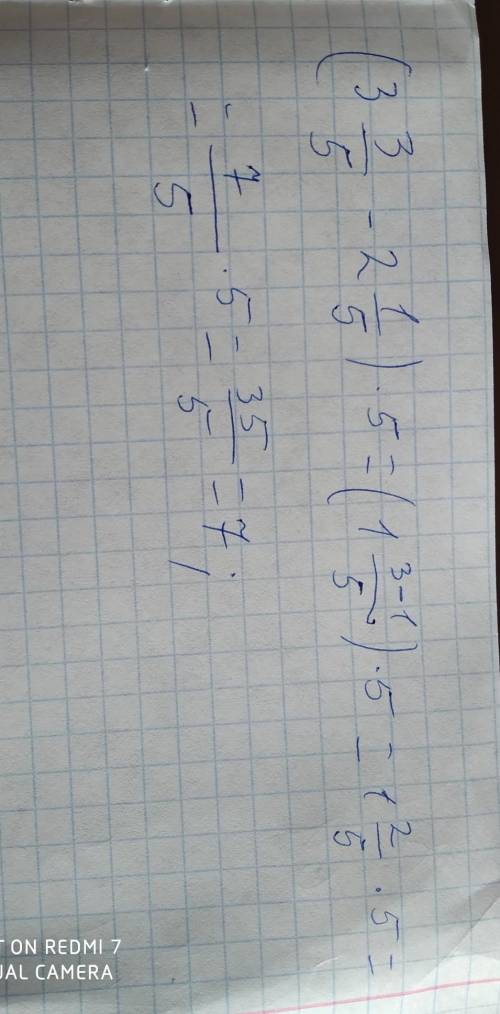 (3 3/5 - 2 1/5) · 5 = (1 (3-1)/5) · 5 = 1 2/5 · 5 =
= 7/5 · 5 = 35/5 = 7;
T ON REDMI 7
UAL CAMERA